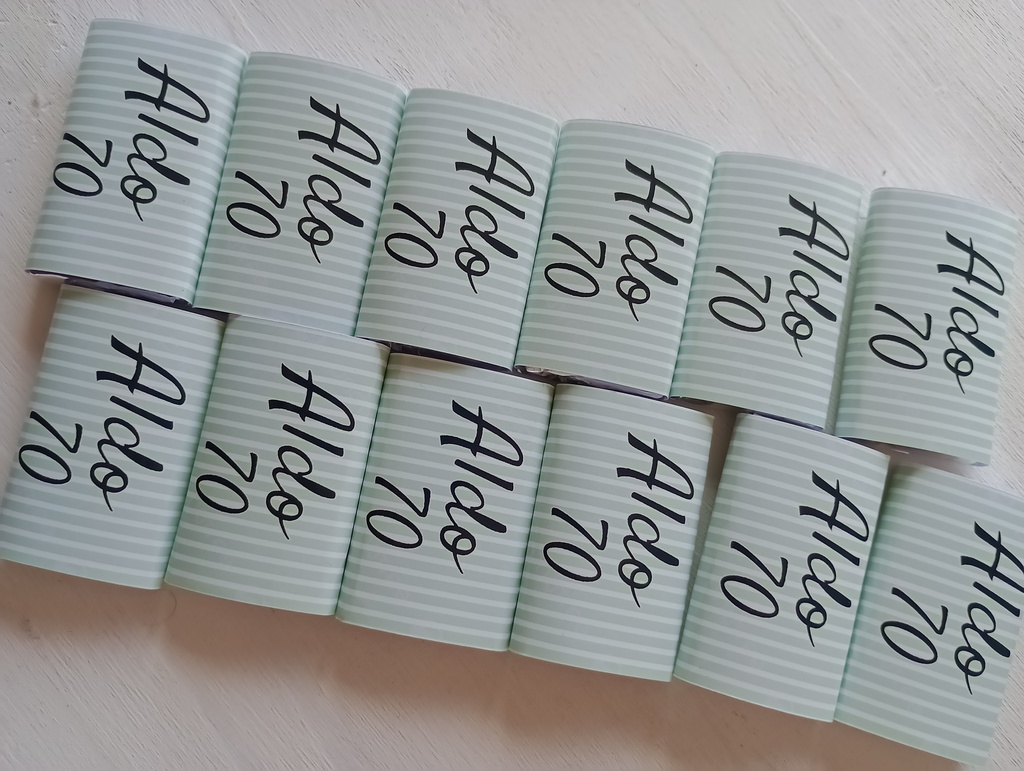 Aldo
70
Aldo
70
Aldo
70
Aldo
70
Aldo
70
Aldo
70
Aldo
70
Aldo
70
Aldo
70
Aldo
70
Aldo
70
Aldo
70